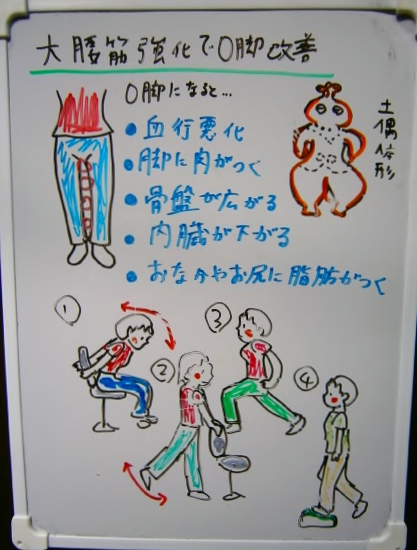 大腰筋強化でO脚改善
O脚になると…
• 血行悪化
• 脚に肉がつく
• 骨盤が広がる
• 内臓が下がる
• おなかやお尻に脂肪がつく
土偶体形
①
②
③
④